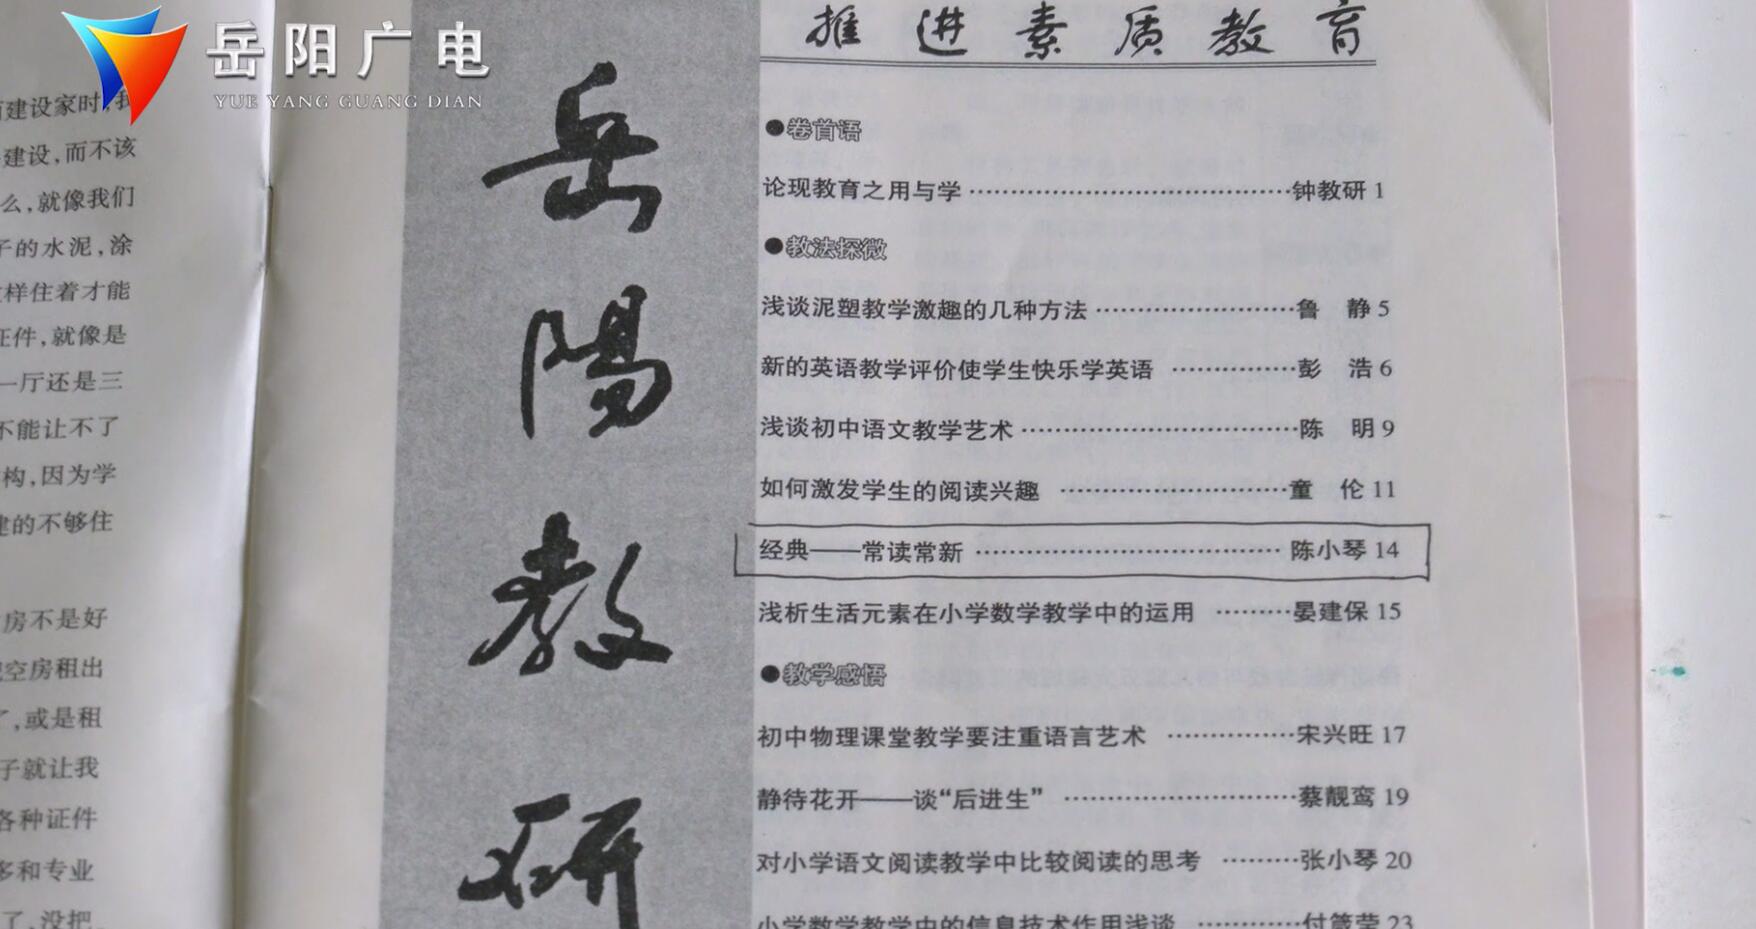 岳阳广电
YUE YANG GUANG DIAN
建设家时,我
建设,而不该
么,就像我们
子的水泥,涂
样住着才能
证件,就像是
一厅还是三
不能让不了
构,因为学
建的不够住
房不是好
空房租出
了,或是租
子就让我
各种证件
多和专业
了,没把
岳陽教研
推进素质教育
●卷首语
论现教育之用与学……………………………………钟教研 1
●教法探微
浅谈泥塑教学激趣的几种方法……………………鲁 静 5
新的英语教学评价使学生快乐学英语……………彭 浩 6
浅谈初中语文教学艺术……………………………陈 明 9
如何激发学生的阅读兴趣………………………童 伦 11
经典——常读常新………………………………陈小琴 14
浅析生活元素在小学数学教学中的运用………晏建保 15
●教学感悟
初中物理课堂教学要注重语言艺术……………宋兴旺 17
静待花开——谈“后进生”………………………蔡靓鸾 19
对小学语文阅读教学中比较阅读的思考………张小琴 20
小学数学教学中的信息技术作用浅谈…………付箴荣 23